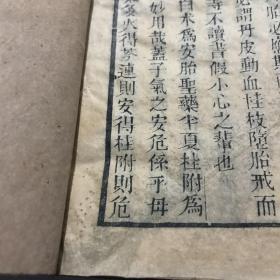 胎必
必謂丹皮動血桂枝墮胎戒而
等不讀書假小心之輩也
白朮為安胎聖藥半夏桂附為
妙用哉蓋子氣之安危係乎母
火得芩連則安得桂附則危